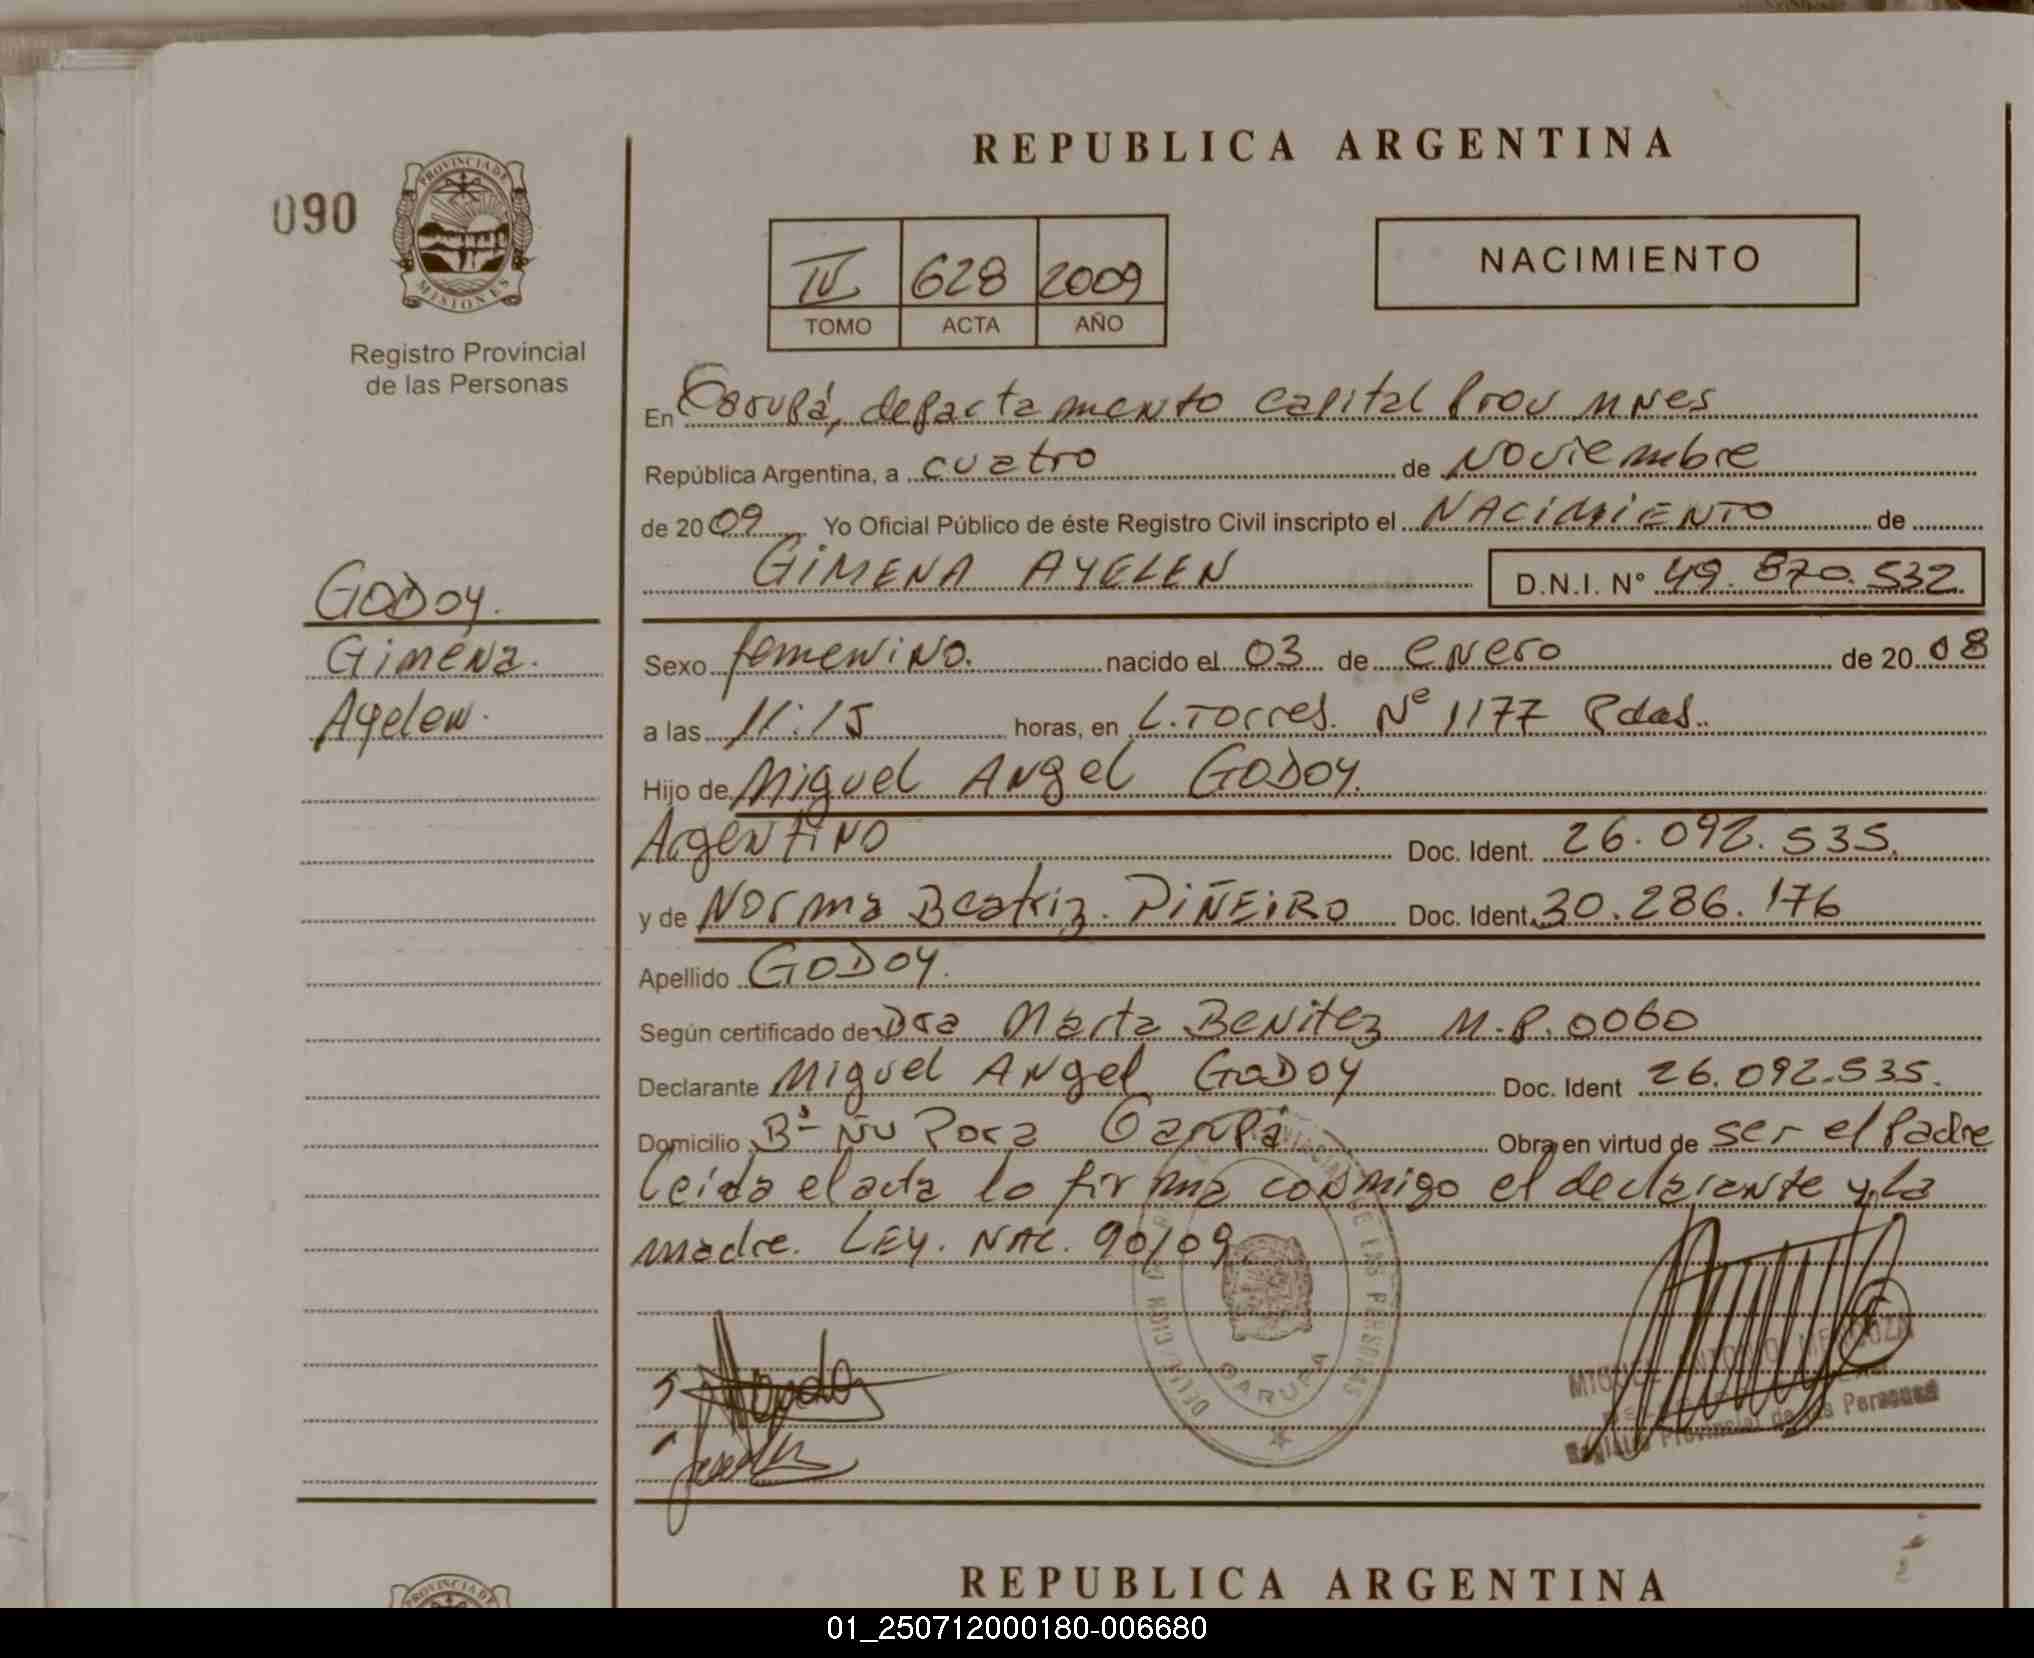 REPUBLICA ARGENTINA
090
PROVINCIA DE
MISIONES
Registro Provincial
de las Personas
IV 628 2009
TOMO ACTA AÑO
NACIMIENTO
En Garupá, departamento capital Prov mnes
República Argentina, a cuatro de Noviembre
de 2009 Yo Oficial Público de éste Registro Civil inscripto el NACIMIENTO de
GIMENA AYELEN D.N.I. N° 49.870.532
GODOY.
Gimena.
Ayelen.
Sexo femenino. nacido el 03 de enero de 2008
a las 11:15 horas, en L. Torres. Nº 1177 Pdas.
Hijo de Miguel Angel GODOY.
Argentino Doc. Ident. 26.092.535.
y de Norma Beatriz. PIÑEIRO Doc. Ident. 30.286.176
Apellido GODOY.
Según certificado de Dra Marta Benitez M.P. 0060
Declarante Miguel Angel GODOY Doc. Ident 26.092.535.
Domicilio Bº Ñu Pora Garupá Obra en virtud de ser el Padre
Leida el acta lo firma conmigo el declarante y la
madre. LEY. NAC. 90/09.
DE LAS PERSONAS
GARUPA
MIGUEL ANTONIO MENDOZA
Registro Provincial de las Personas
REPUBLICA ARGENTINA
PROVINCIA DE
01_250712000180-006680